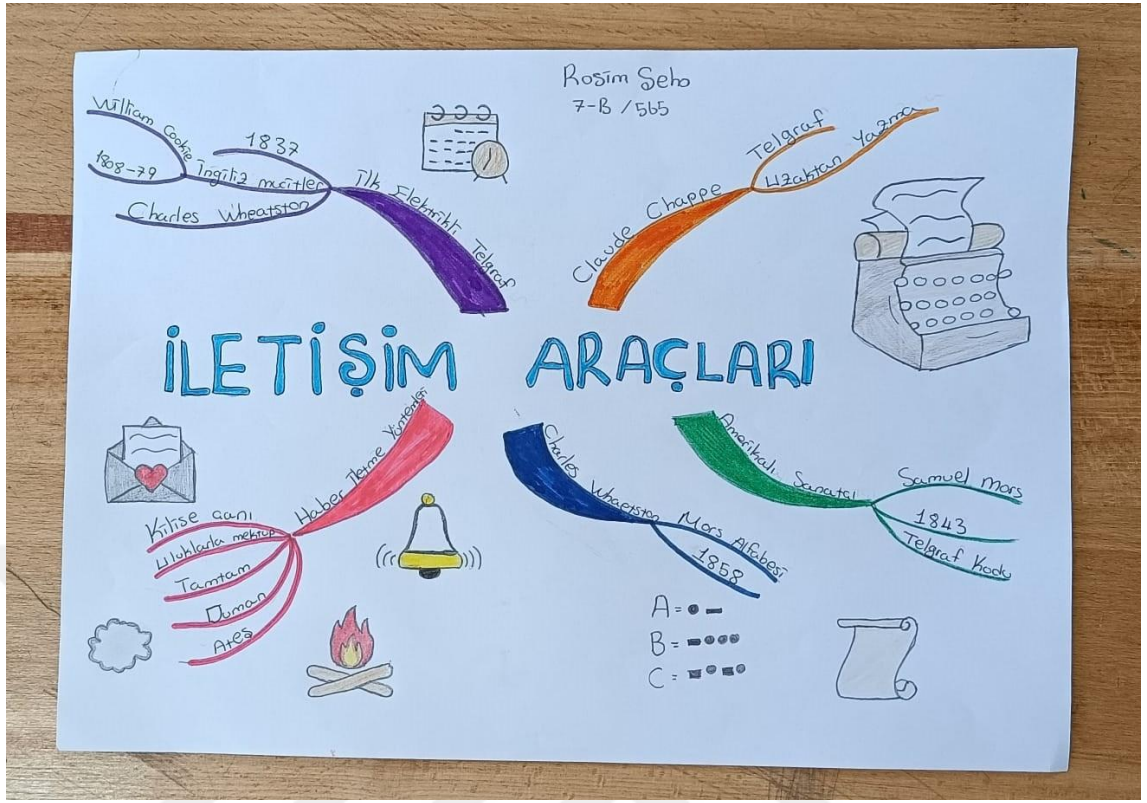 Rosim Şeho
7-B / 565
William Cookie
1808-79
1837
İngiliz mucitler
Charles Wheatston
İlk Elektrikli Telgraf
Claude Chappe
Telgraf
Uzaktan Yazma
İLETİŞİM ARAÇLARI
Haber İletme Yöntemleri
Kilise çanı
Ulaklarla mektup
Tamtam
Duman
Ateş
Charles Whaetston
Mors Alfabesi
1858
A = ● ▬
B = ▬ ● ● ●
C = ▬ ● ▬ ●
Amerikalı Sanatçı
Samuel mors
1843
Telgraf Kodu